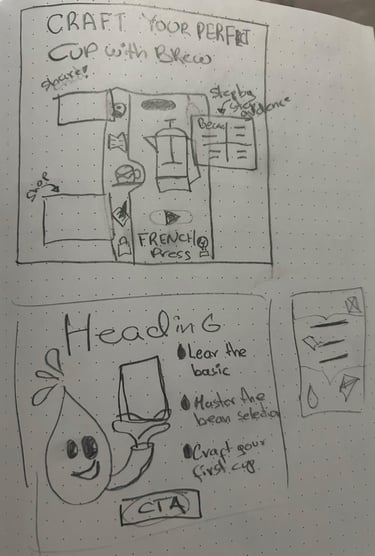 CRAFT YOUR PERFECT
CUP with BREW
share!
Step by
step
guidance
Bean
Shop
FRENCH
Press
HeadinG
Lear the
basic
Master the
bean selection
Craft your
first cup
CTA